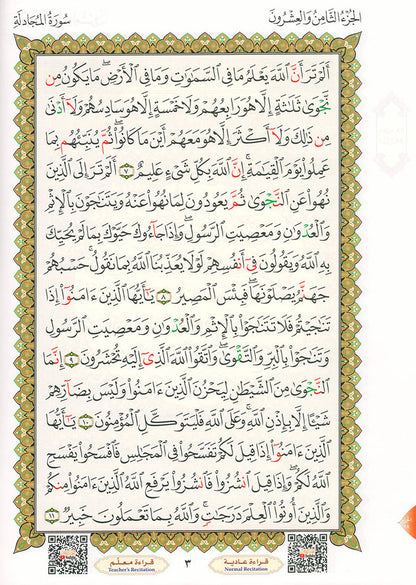 الجزء الثامن والعشرون
سورة المجادلة
أَلَمْ تَرَ أَنَّ اللَّهَ يَعْلَمُ مَا فِي السَّمَاوَاتِ وَمَا فِي الْأَرْضِ مَا يَكُونُ مِن
نَّجْوَىٰ ثَلَاثَةٍ إِلَّا هُوَ رَابِعُهُمْ وَلَا خَمْسَةٍ إِلَّا هُوَ سَادِسُهُمْ وَلَا أَدْنَىٰ
مِن ذَٰلِكَ وَلَا أَكْثَرَ إِلَّا هُوَ مَعَهُمْ أَيْنَ مَا كَانُوا ثُمَّ يُنَبِّئُهُم بِمَا
عَمِلُوا يَوْمَ الْقِيَامَةِ إِنَّ اللَّهَ بِكُلِّ شَيْءٍ عَلِيمٌ ٧ أَلَمْ تَرَ إِلَى الَّذِينَ
نُهُوا عَنِ النَّجْوَىٰ ثُمَّ يَعُودُونَ لِمَا نُهُوا عَنْهُ وَيَتَنَاجَوْنَ بِالْإِثْمِ
وَالْعُدْوَانِ وَمَعْصِيَتِ الرَّسُولِ وَإِذَا جَاءُوكَ حَيَّوْكَ بِمَا لَمْ يُحَيِّكَ
بِهِ اللَّهُ وَيَقُولُونَ فِي أَنفُسِهِمْ لَوْلَا يُعَذِّبُنَا اللَّهُ بِمَا نَقُولُ حَسْبُهُمْ
جَهَنَّمُ يَصْلَوْنَهَا فَبِئْسَ الْمَصِيرُ ٨ يَا أَيُّهَا الَّذِينَ آمَنُوا إِذَا
تَنَاجَيْتُمْ فَلَا تَتَنَاجَوْا بِالْإِثْمِ وَالْعُدْوَانِ وَمَعْصِيَتِ الرَّسُولِ
وَتَنَاجَوْا بِالْبِرِّ وَالتَّقْوَىٰ وَاتَّقُوا اللَّهَ الَّذِي إِلَيْهِ تُحْشَرُونَ ٩ إِنَّمَا
النَّجْوَىٰ مِنَ الشَّيْطَانِ لِيَحْزُنَ الَّذِينَ آمَنُوا وَلَيْسَ بِضَارِّهِمْ
شَيْئًا إِلَّا بِإِذْنِ اللَّهِ وَعَلَى اللَّهِ فَلْيَتَوَكَّلِ الْمُؤْمِنُونَ ١٠ يَا أَيُّهَا
الَّذِينَ آمَنُوا إِذَا قِيلَ لَكُمْ تَفَسَّحُوا فِي الْمَجَالِسِ فَافْسَحُوا يَفْسَحِ
اللَّهُ لَكُمْ وَإِذَا قِيلَ انشُزُوا فَانشُزُوا يَرْفَعِ اللَّهُ الَّذِينَ آمَنُوا مِنكُمْ
وَالَّذِينَ أُوتُوا الْعِلْمَ دَرَجَاتٍ وَاللَّهُ بِمَا تَعْمَلُونَ خَبِيرٌ ١١
قراءة عادية
Normal Recitation
٣
قراءة معلم
Teacher's Recitation